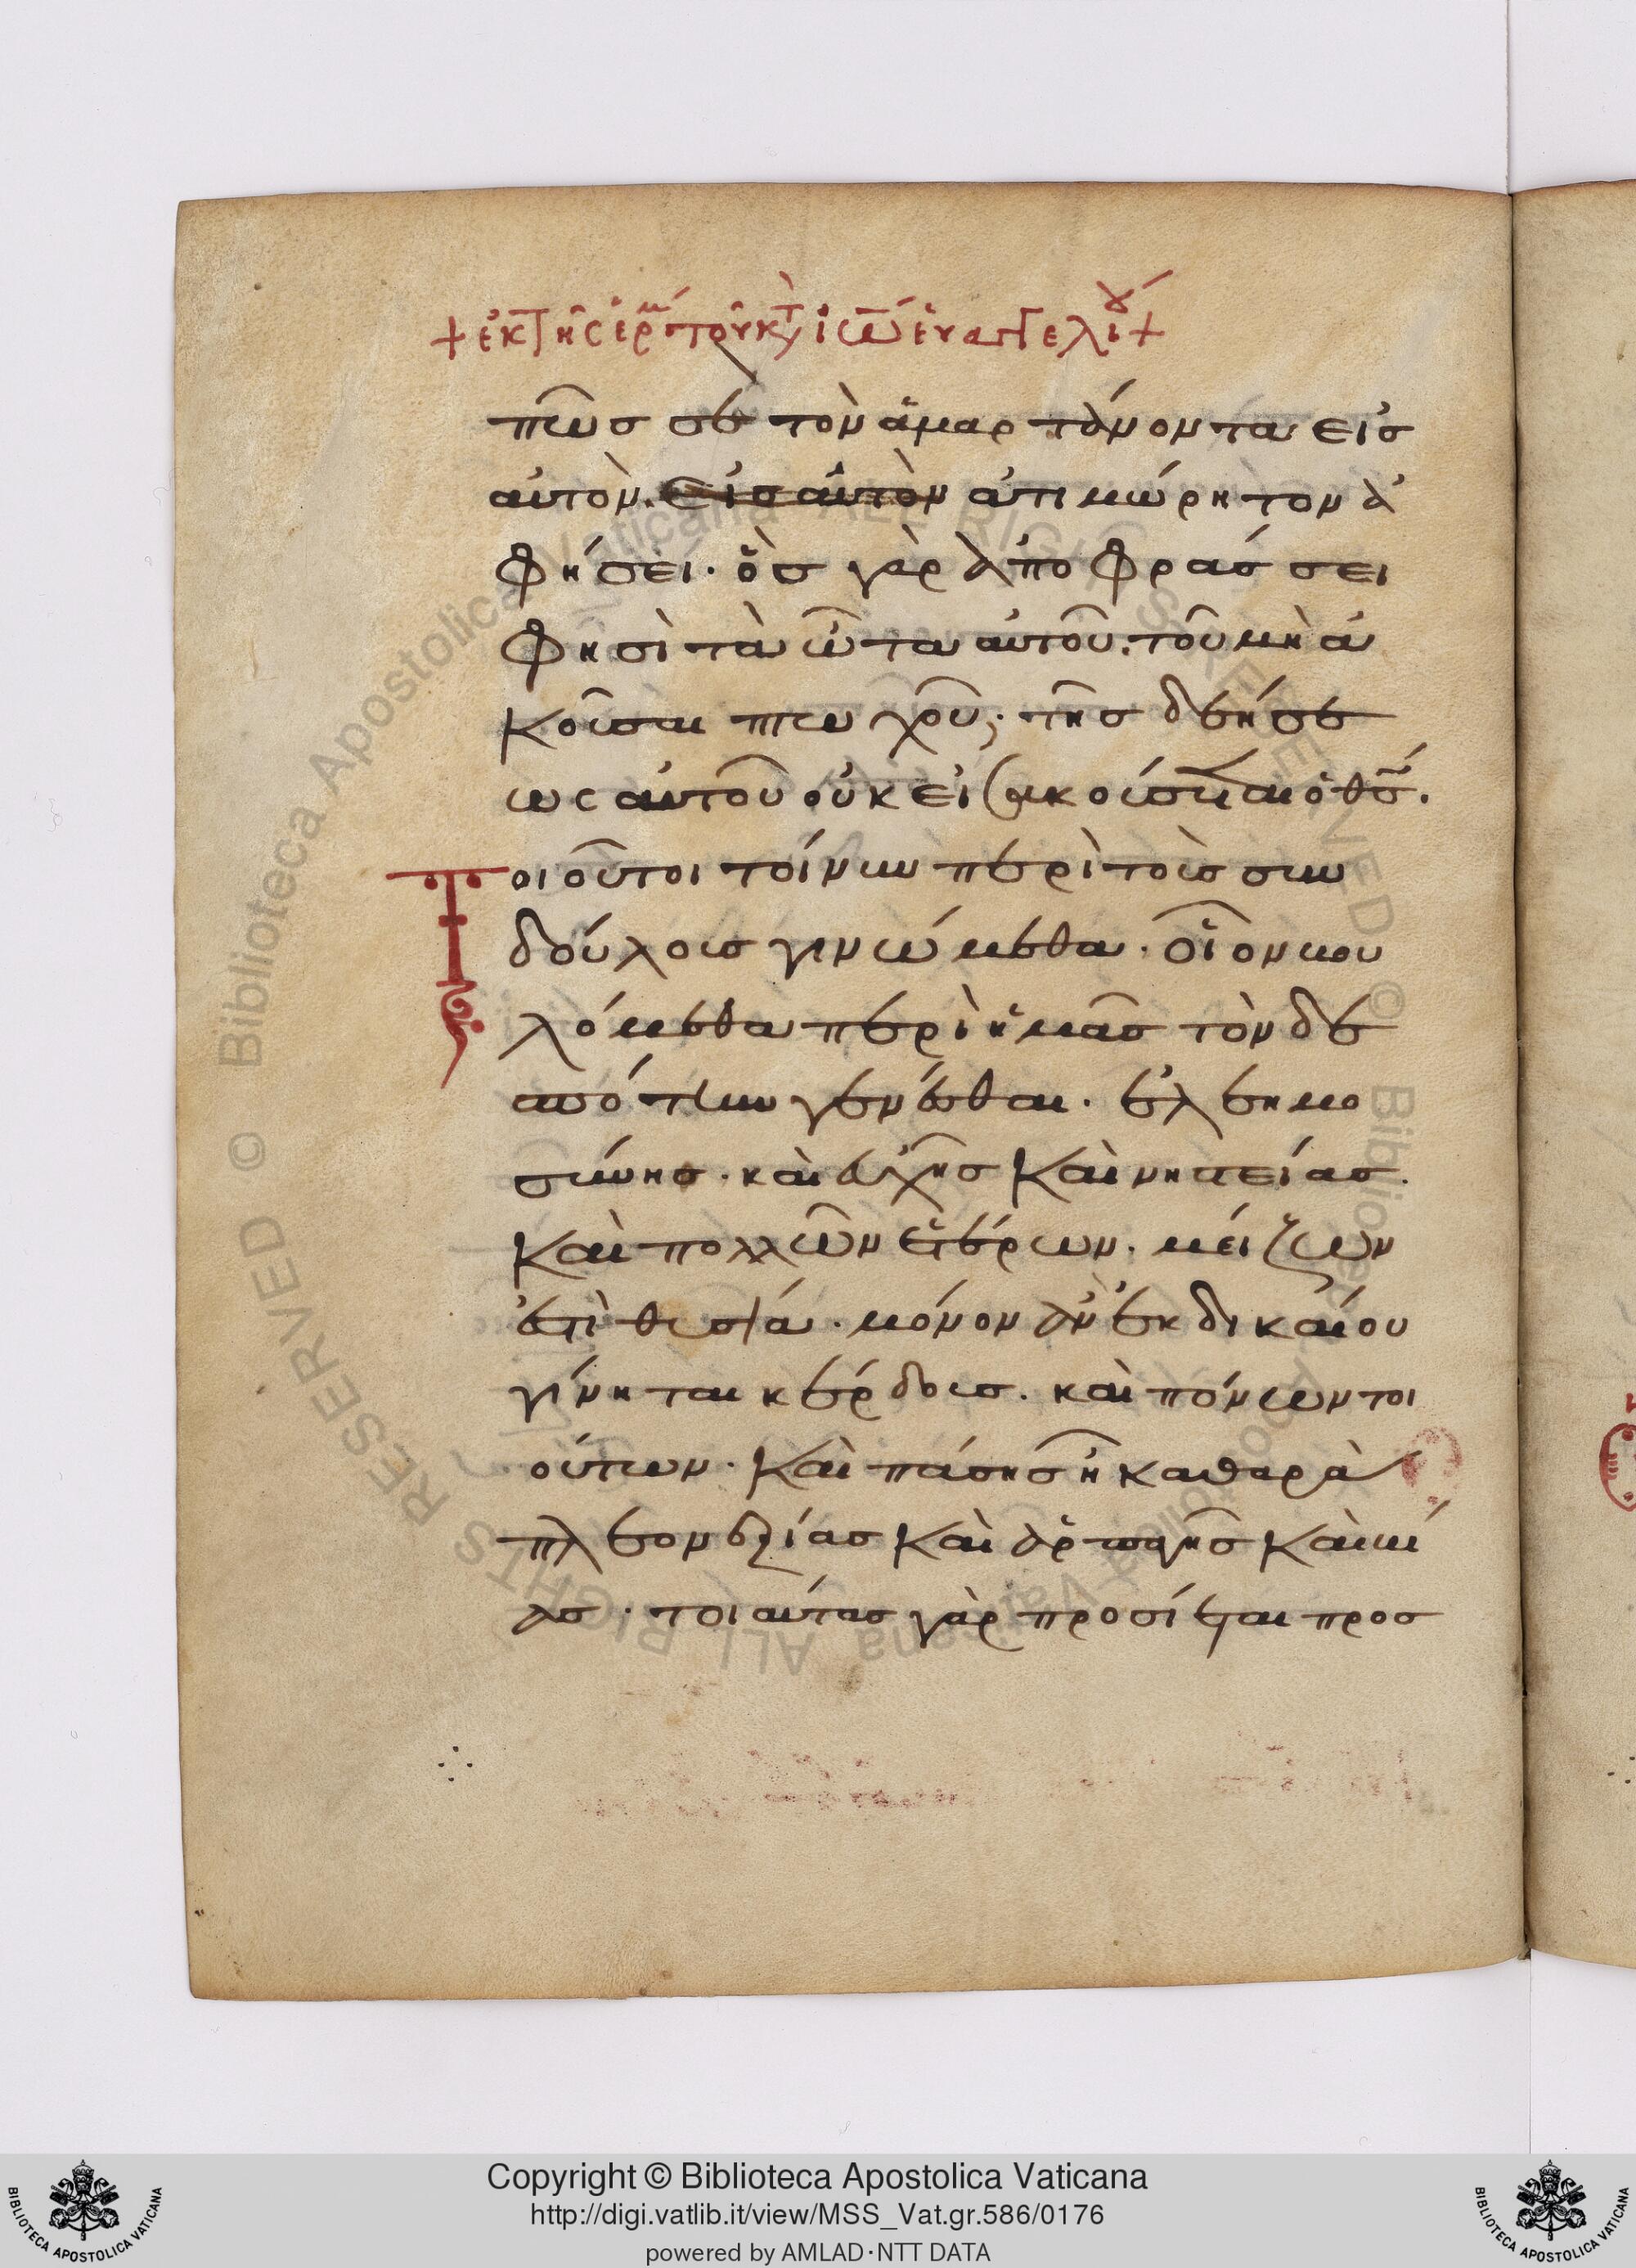 + ἐκ τῆς ἑρμ τοῦ κτ ἰω εὐαγγελίου +
πῶσ σε τὸν ἁμαρτάνοντα εἰσ
αὐτὸν. εἰσ αὐτὸν ἀτιμώρητον ἀ
φήσει· ὃσ γὰρ ἀποφράσσει
φησὶ τὰ ὦτα αὐτοῦ. τοῦ μὴ ἀ
κοῦσαι πτωχοῦ· τῆσ δεήσε
ως αὐτοῦ οὐκ εἰσακούσεται ὁ θσ.
Τοιοῦτοι τοίνυν περὶ τοὺσ συν
δούλουσ γινώμεθα· οἷον βου
λόμεθα περὶ ἡμᾶσ τὸν δε
σπότην γενέσθαι· ἐλεημο
σύνησ· καὶ εὐχῆσ καὶ νηστείασ.
καὶ πολλῶν ἑτέρων. μείζων
ἐστὶ θυσία· μόνον ἂν ἐκ δικαίου
γίνηται κέρδουσ. καὶ πόνων τοι
ούτων· καὶ πάσησ ἦ καθαρὰ
πλεονεξίασ καὶ ἁρπαγῆσ καὶ βί
ασ· τοιαύτασ γὰρ προσίεται προσ
Copyright © Biblioteca Apostolica Vaticana
http://digi.vatlib.it/view/MSS_Vat.gr.586/0176
powered by AMLAD·NTT DATA
BIBLIOTECA APOSTOLICA VATICANA
BIBLIOTECA APOSTOLICA VATICANA
Biblioteca Apostolica Vaticana ALL RIGHTS RESERVED ©
Biblioteca Apostolica Vaticana ALL RIGHTS RESERVED ©